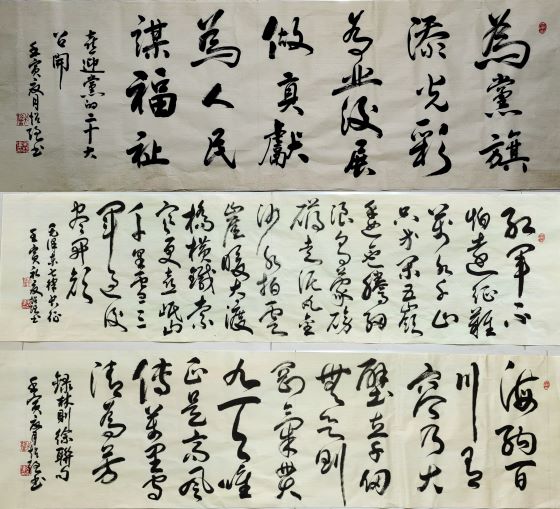 為黨旗
添光彩
為业发展
做貢獻
為人民
謀福祉
喜迎黨的二十大
召開
壬寅夏月書
紅軍不
怕遠征難
萬水千山
只等閑五嶺
逶迤騰細
浪烏蒙磅
礴走泥丸金
沙水拍雲
崖暖大渡
橋橫鐵索
寒更喜岷山
千里雪三
軍過後
盡開顏
毛澤東七律長征
壬寅書
海納百
川有
容乃大
壁立千仞
無欲則
剛氣貫
九天唯
正是高風
傳萬里
清為芳
錄林則徐聯句
壬寅夏月書